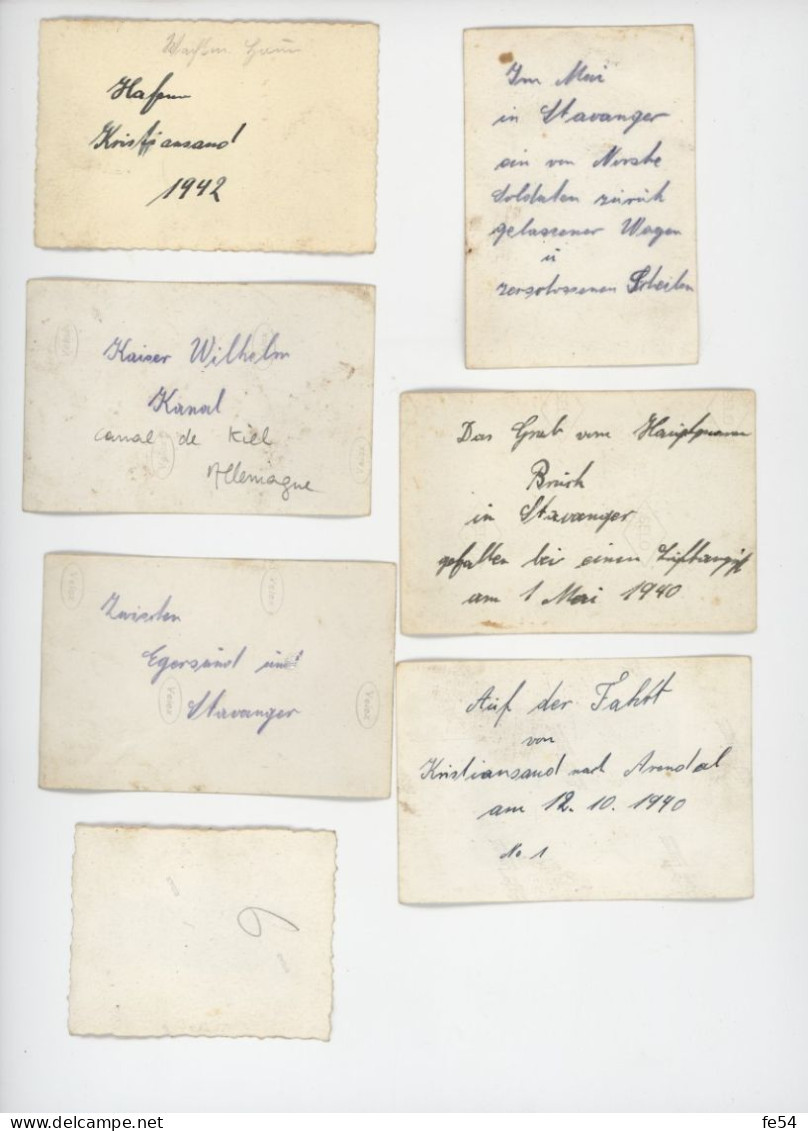 Hafen
Kristiansand
1942
Im Mai
in Stavanger
ein von Norske
Soldaten zurück
gelassener Wagen
u
zerschossenen
Kaiser Wilhelm
Kanal
canal de Kiel
Allemagne
Das Grab vom Hauptmann
Brüsh
in Stavanger
gefallen bei einen Luftangriff
am 1 Mai 1940
Zwischen
Egersund und
Stavanger
Velox
Velox
Velox
Velox
Auf der Fahrt
von
Kristiansand nach Arendal
am 12. 10. 1940
No 1
6
delcampe.net
fe54